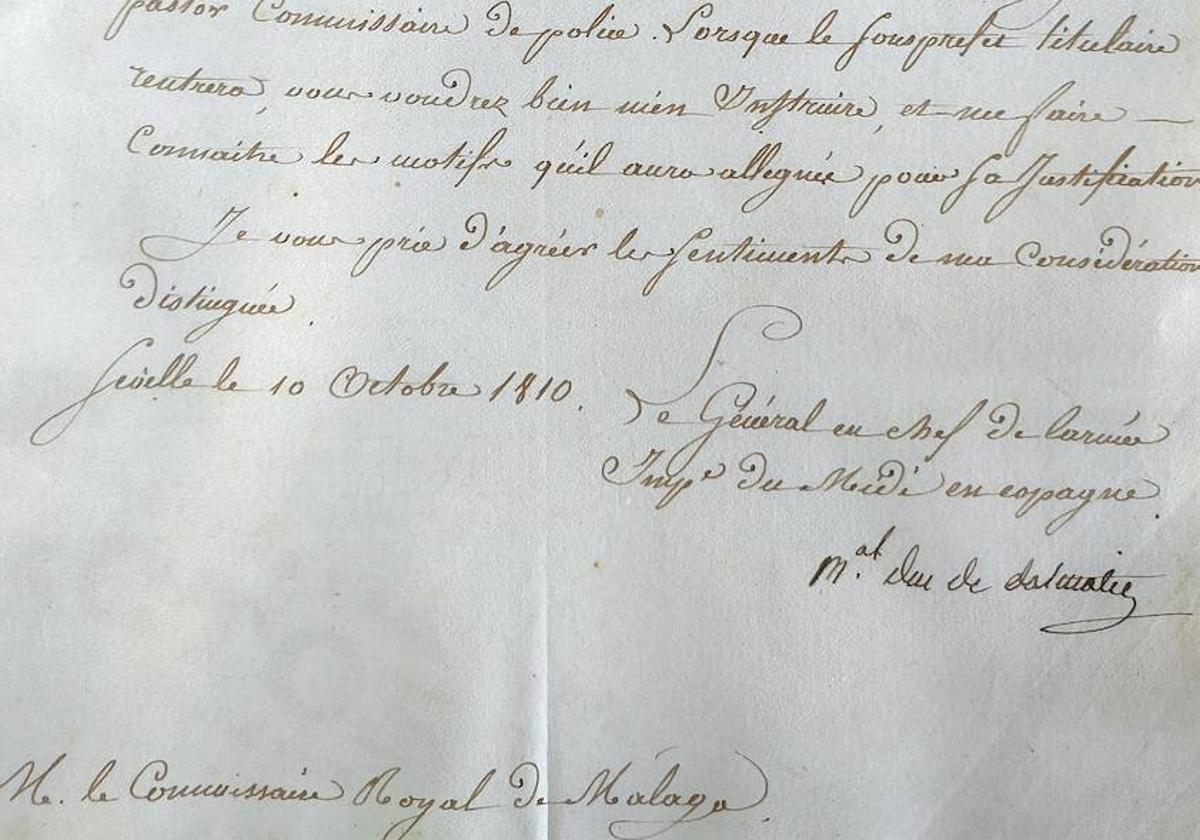 pastor Commissaire de police. Lorsque le souspréfet titulaire
rentrera, vous voudrez bien m'en Instruire, et me faire —
Connaitre les motifs qu'il aura allegués pour sa Justification
Je vous prie d'agréer les sentiments de ma Considération
distinguée.
Seville le 10 Octobre 1810.
Le Général en chef de l'armée
Imp.e du Midi en espagne.
M.al duc de dalmatie
M. le Commissaire Royal de Málaga.